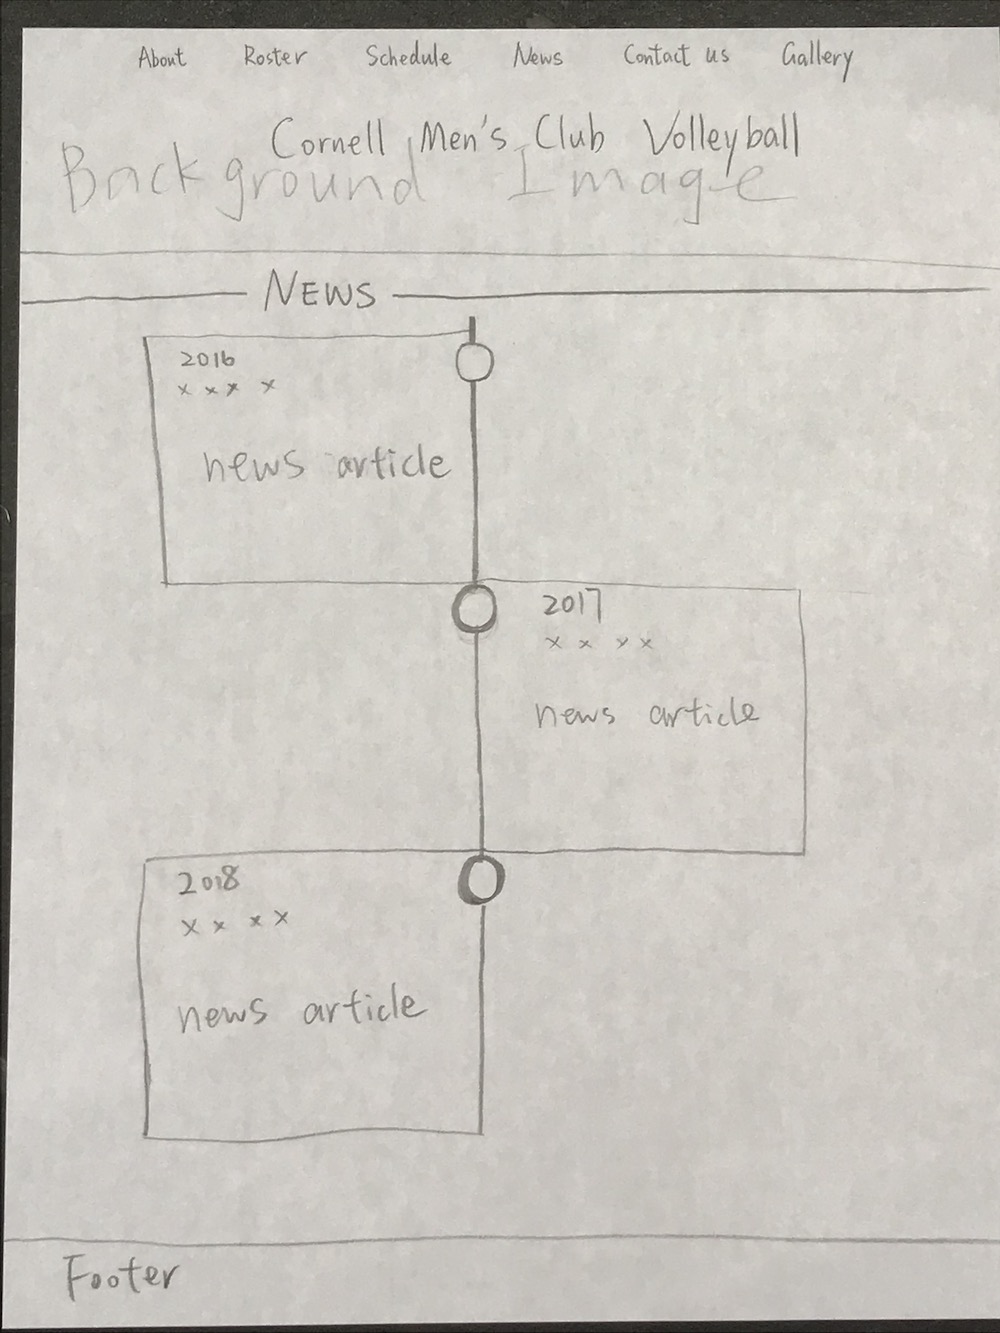 About Roster Schedule News Contact us Gallery
Cornell Men's Club Volleyball
Background Image
NEWS
2016
x x x x
news article
2017
x x x x
news article
2018
x x x x
news article
Footer